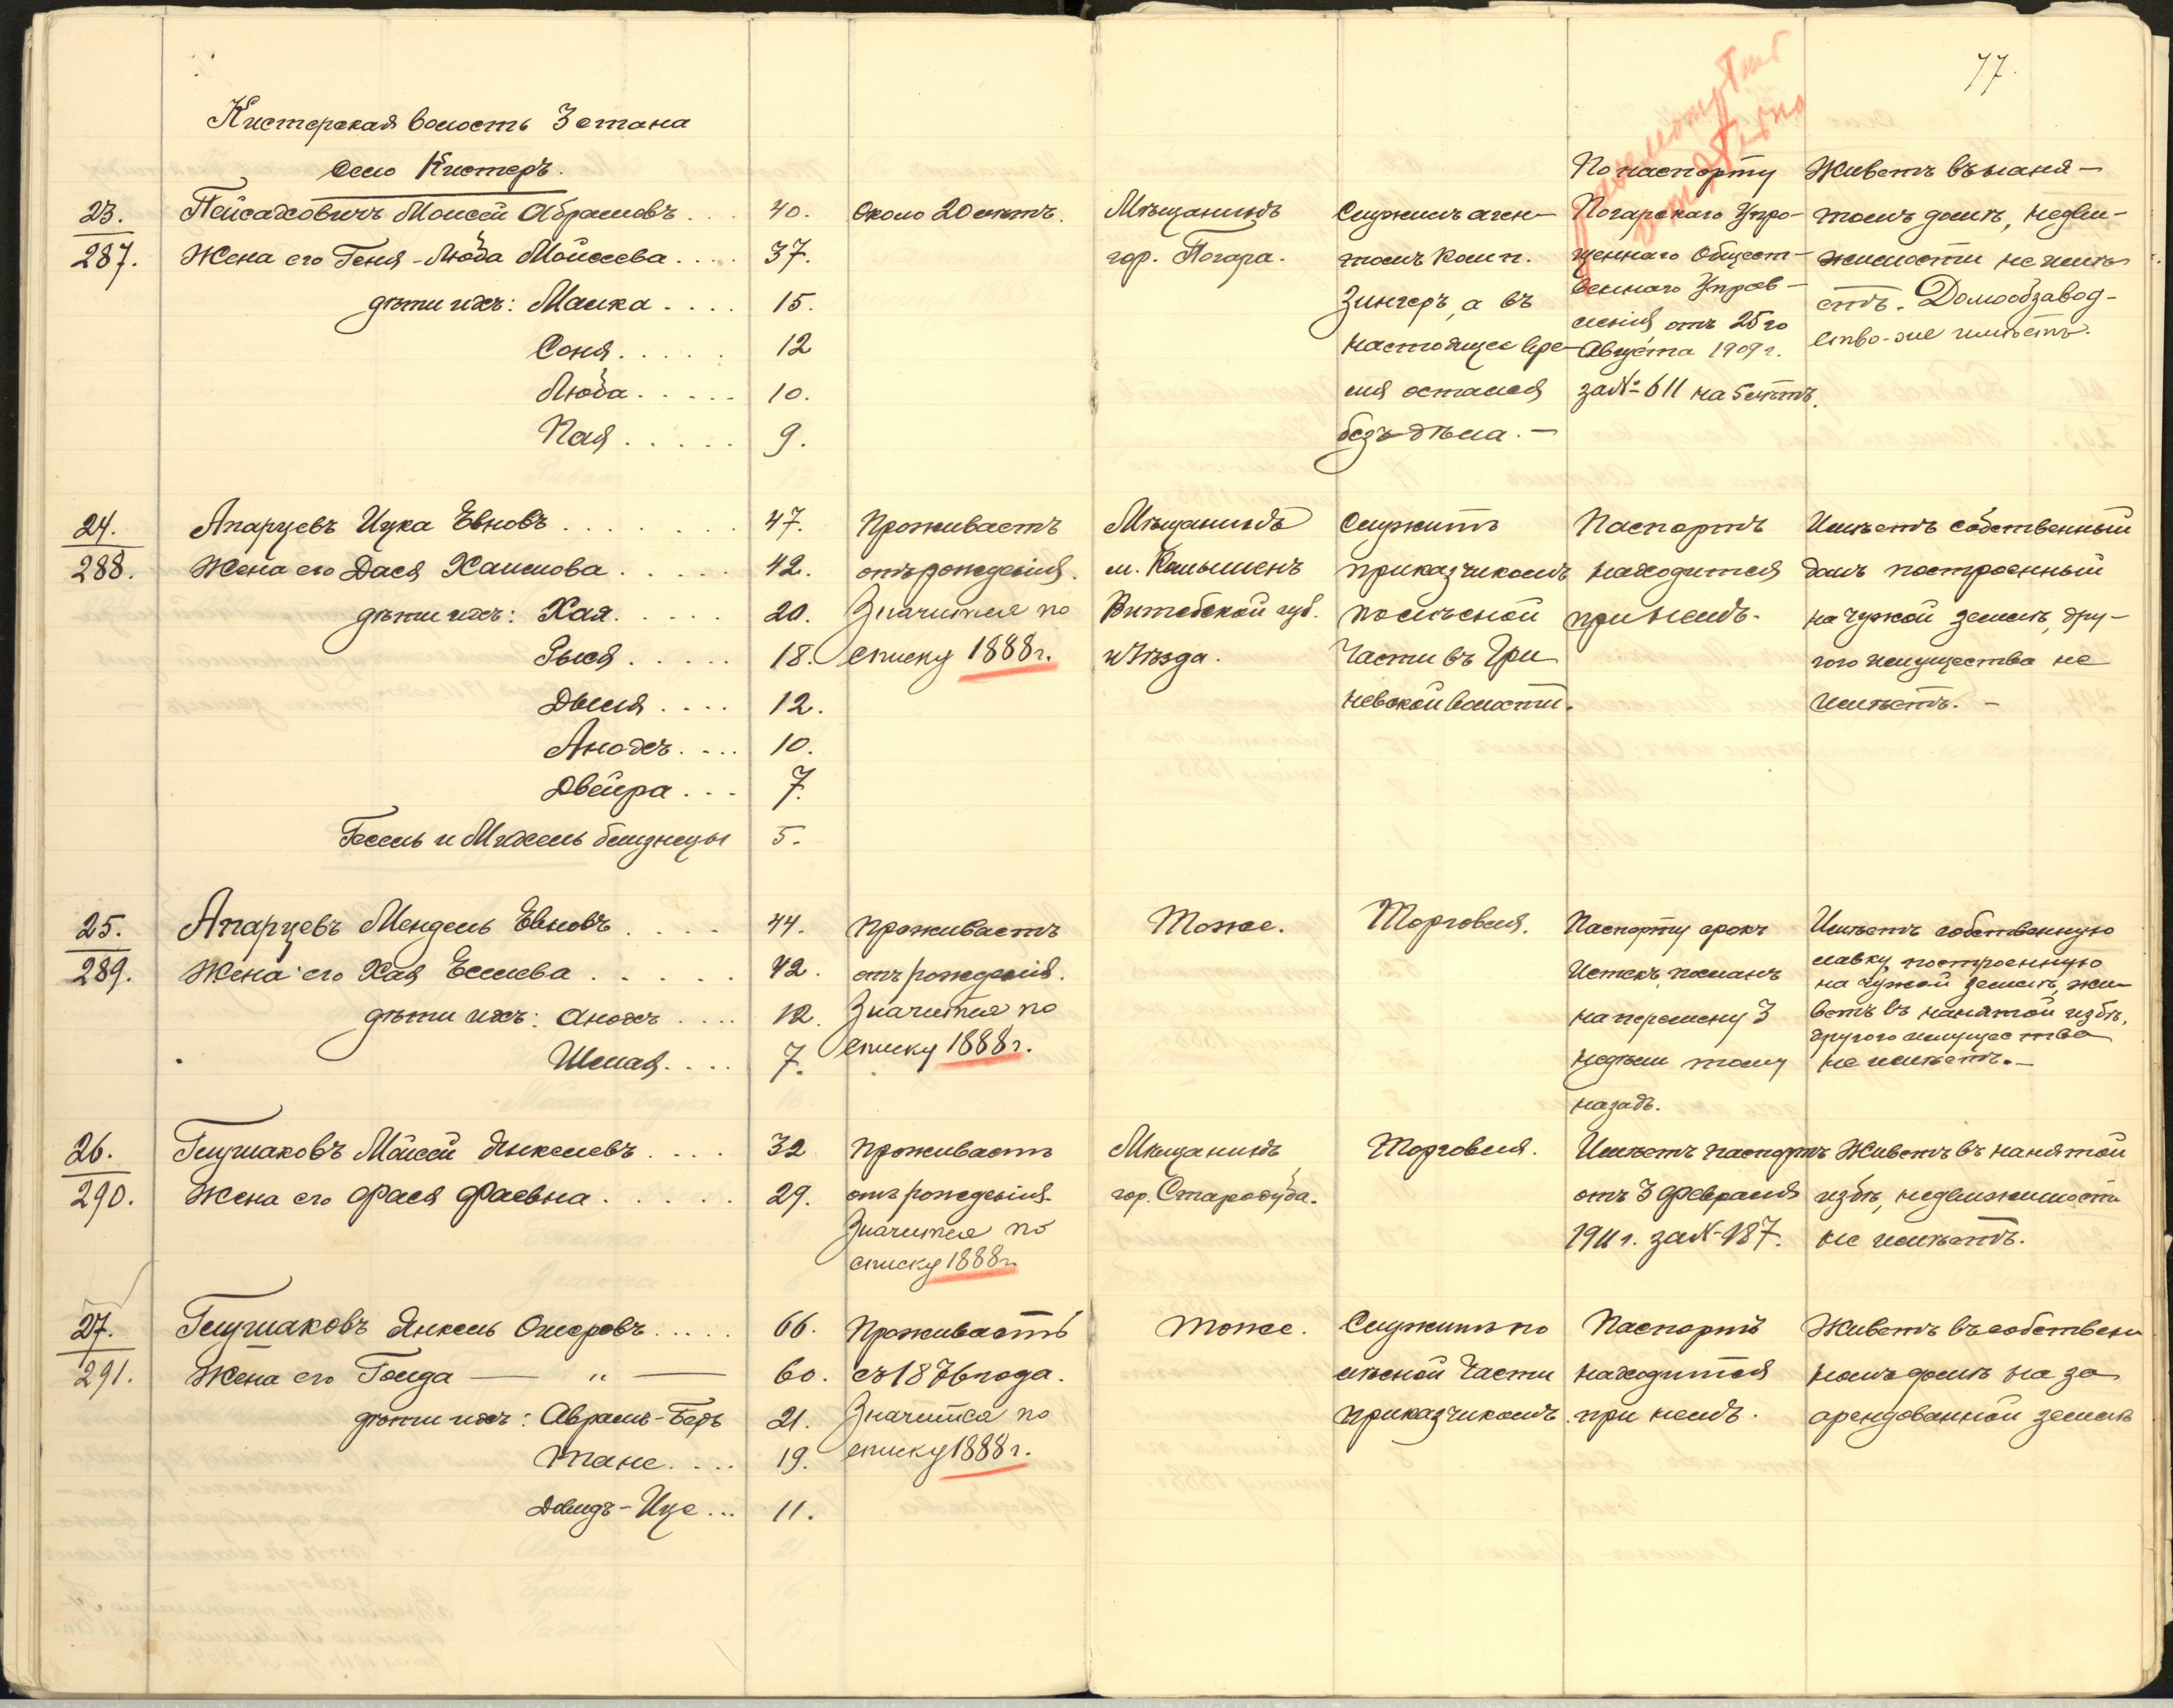 77.
Кистерская волость 3 стана
село Кистеръ.
23.
287.
Пейсаховичъ Моисей Абрамовъ . . . 40.
Жена его Геня-Люба Мойсеева . . . . 37.
дѣти ихъ: Манка . . . . 15.
Соня . . . . . 12
Люба . . . . . 10.
Пая . . . . . 9.
Около 20 лѣтъ.
Мѣщанинъ
гор. Погара.
Служилъ аген-
томъ Комп.
Зингеръ, а въ
настоящее вре-
мя остался
безъ дѣла. —
По паспорту
Погарскаго Упро-
щеннаго Общест-
веннаго Управ-
ленія отъ 25го
Августа 1909 г.
за № 611 на 5 лѣтъ.
Живетъ въ наня-
томъ домѣ, недви-
жимости не имѣ
етъ. Домообзавод-
ство-же имѣетъ.
24.
288.
Апарцевъ Ицка Евновъ . . . . . . . 47.
Жена его Дася Хаимова . . . . . 42.
дѣти ихъ: Хая . . . . . 20.
Рыся . . . . . 18.
Дыня . . . . 12.
Анохъ . . . . 10.
Двейра . . . 7.
Гесель и Михель близнецы 5.
Проживаетъ
отъ рожденія.
Значится по
списку 1888 г.
Мѣщанинъ
м. Колышекъ
Витебской губ.
и уѣзда.
Служитъ
приказчикомъ
по лѣсной
части въ Гри
невской волости.
Паспортъ
находится
при немъ.
Имѣетъ собственный
домъ построенный
на чужой землѣ, дру-
гого имущества не
имѣетъ. —
25.
289.
Апарцевъ Мендель Евновъ . . . . 44.
Жена его Хая Еселева . . . . . 42.
дѣти ихъ: Анохъ . . . . 12.
Шмая . . . . 7.
Проживаетъ
отъ рожденія.
Значится по
списку 1888 г.
Тоже.
Торговля.
Паспорту срокъ
истекъ, посланъ
на перемену 3
недѣли тому
назадъ.
Имѣетъ собственную
лавку, построенную
на чужой землѣ, жи-
ветъ въ нанятой избѣ,
другого имущества
не имѣетъ. —
26.
290.
Глушаковъ Мойсей Янкелевъ . . . . 32
Жена его Фася Фаевна . . . . . . 29.
Проживаетъ
отъ рожденія.
Значится по
списку 1888 г.
Мѣщанинъ
гор. Стародуба.
Торговля.
Имѣетъ паспортъ
отъ 3 Февраля
1911 г. за № 187.
Живетъ въ нанятой
избѣ, недвижимости
не имѣетъ.
27.
291.
Глушаковъ Янкель Ошеровъ . . . . . 66.
Жена его Голда — " — 60.
дѣти ихъ: Аврамъ-Беръ 21.
Тане . . . . 19.
Давидъ-Ице . . . 11.
Проживаетъ
съ 1876 года.
Значится по
списку 1888 г.
Тоже.
Служитъ по
лѣсной части
приказчикомъ.
Паспортъ
находится
при немъ.
Живетъ въ собствен
номъ домѣ на за
арендованной землѣ